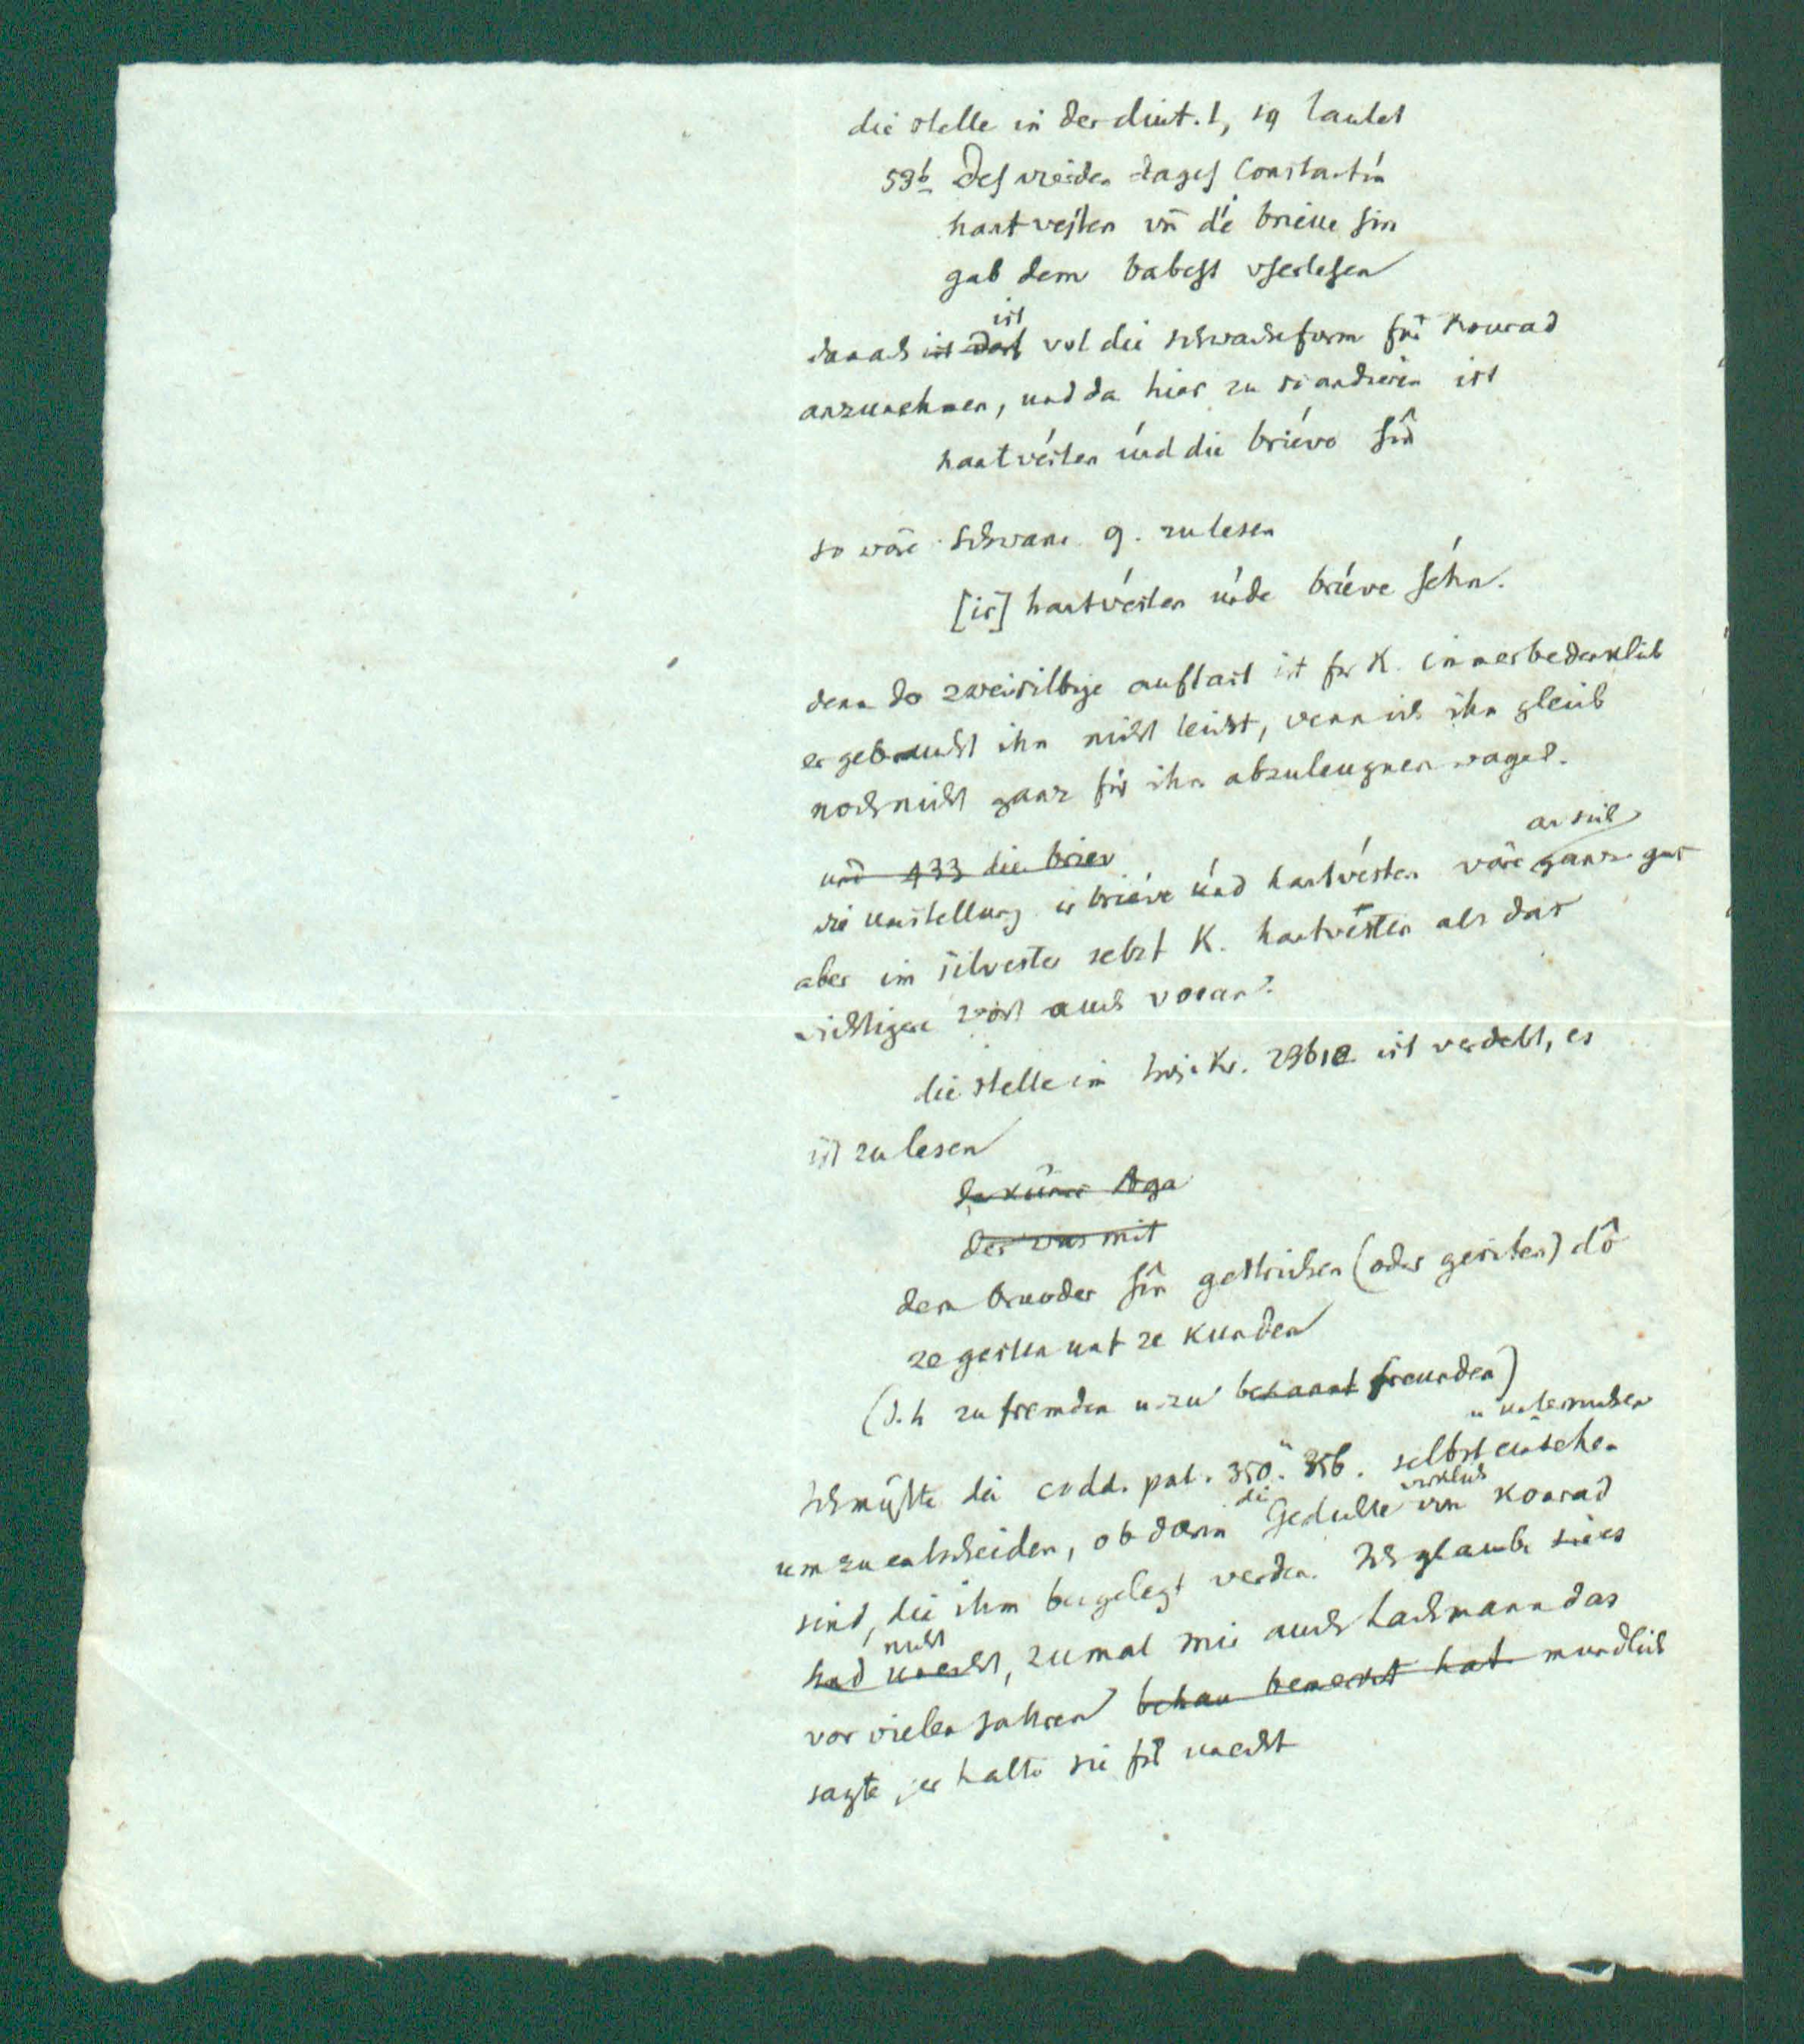 die stelle in der diut. 1, 19 lautet
53b Des vierden tages Constantin
hantvesten vn̄ die brieue sin
gab dem babest vserlesen
danach ist wol die schwache form für Konrad
anzunehmen, und da hier zu scandieren ist
hantvésten únd die briéve sîn
so wäre schwanr. 9. zu lesen
[ir] hantvésten únde briéve séhn.
denn der zweisilbige auftact ist für K. immer bedenklich
er gebraucht ihn nicht leicht, wenn ich ihn gleich
noch nicht ganz für ihn abzuleugnen wage.
und 433 die briev
die umstellung ir briéve únd hantvésten wäre an sich gut
aber im silvester setzt K. hantvesten als das
wichtigere wort auch voran.
die stelle im troj. Kr. ist verderbt, es
ist zu lesen
der was mit
dem bruoder sîn gestrichen (oder geriten) dô
ze gesten unt ze kunden
(d. h zu fremden u. zu bekannt freunden)
Ich müste die codd. pal. 350. 356. selbst einsehen u untersuchen
um zu entscheiden, ob darin die Gedichte wirklich von Konrad
sind, die ihm beigelegt werden. Ich glaube es
nicht, zumal mir auch Lachmann das
vor vielen jahren bemerkt hat mundlich
sagte, er halte sie für unecht